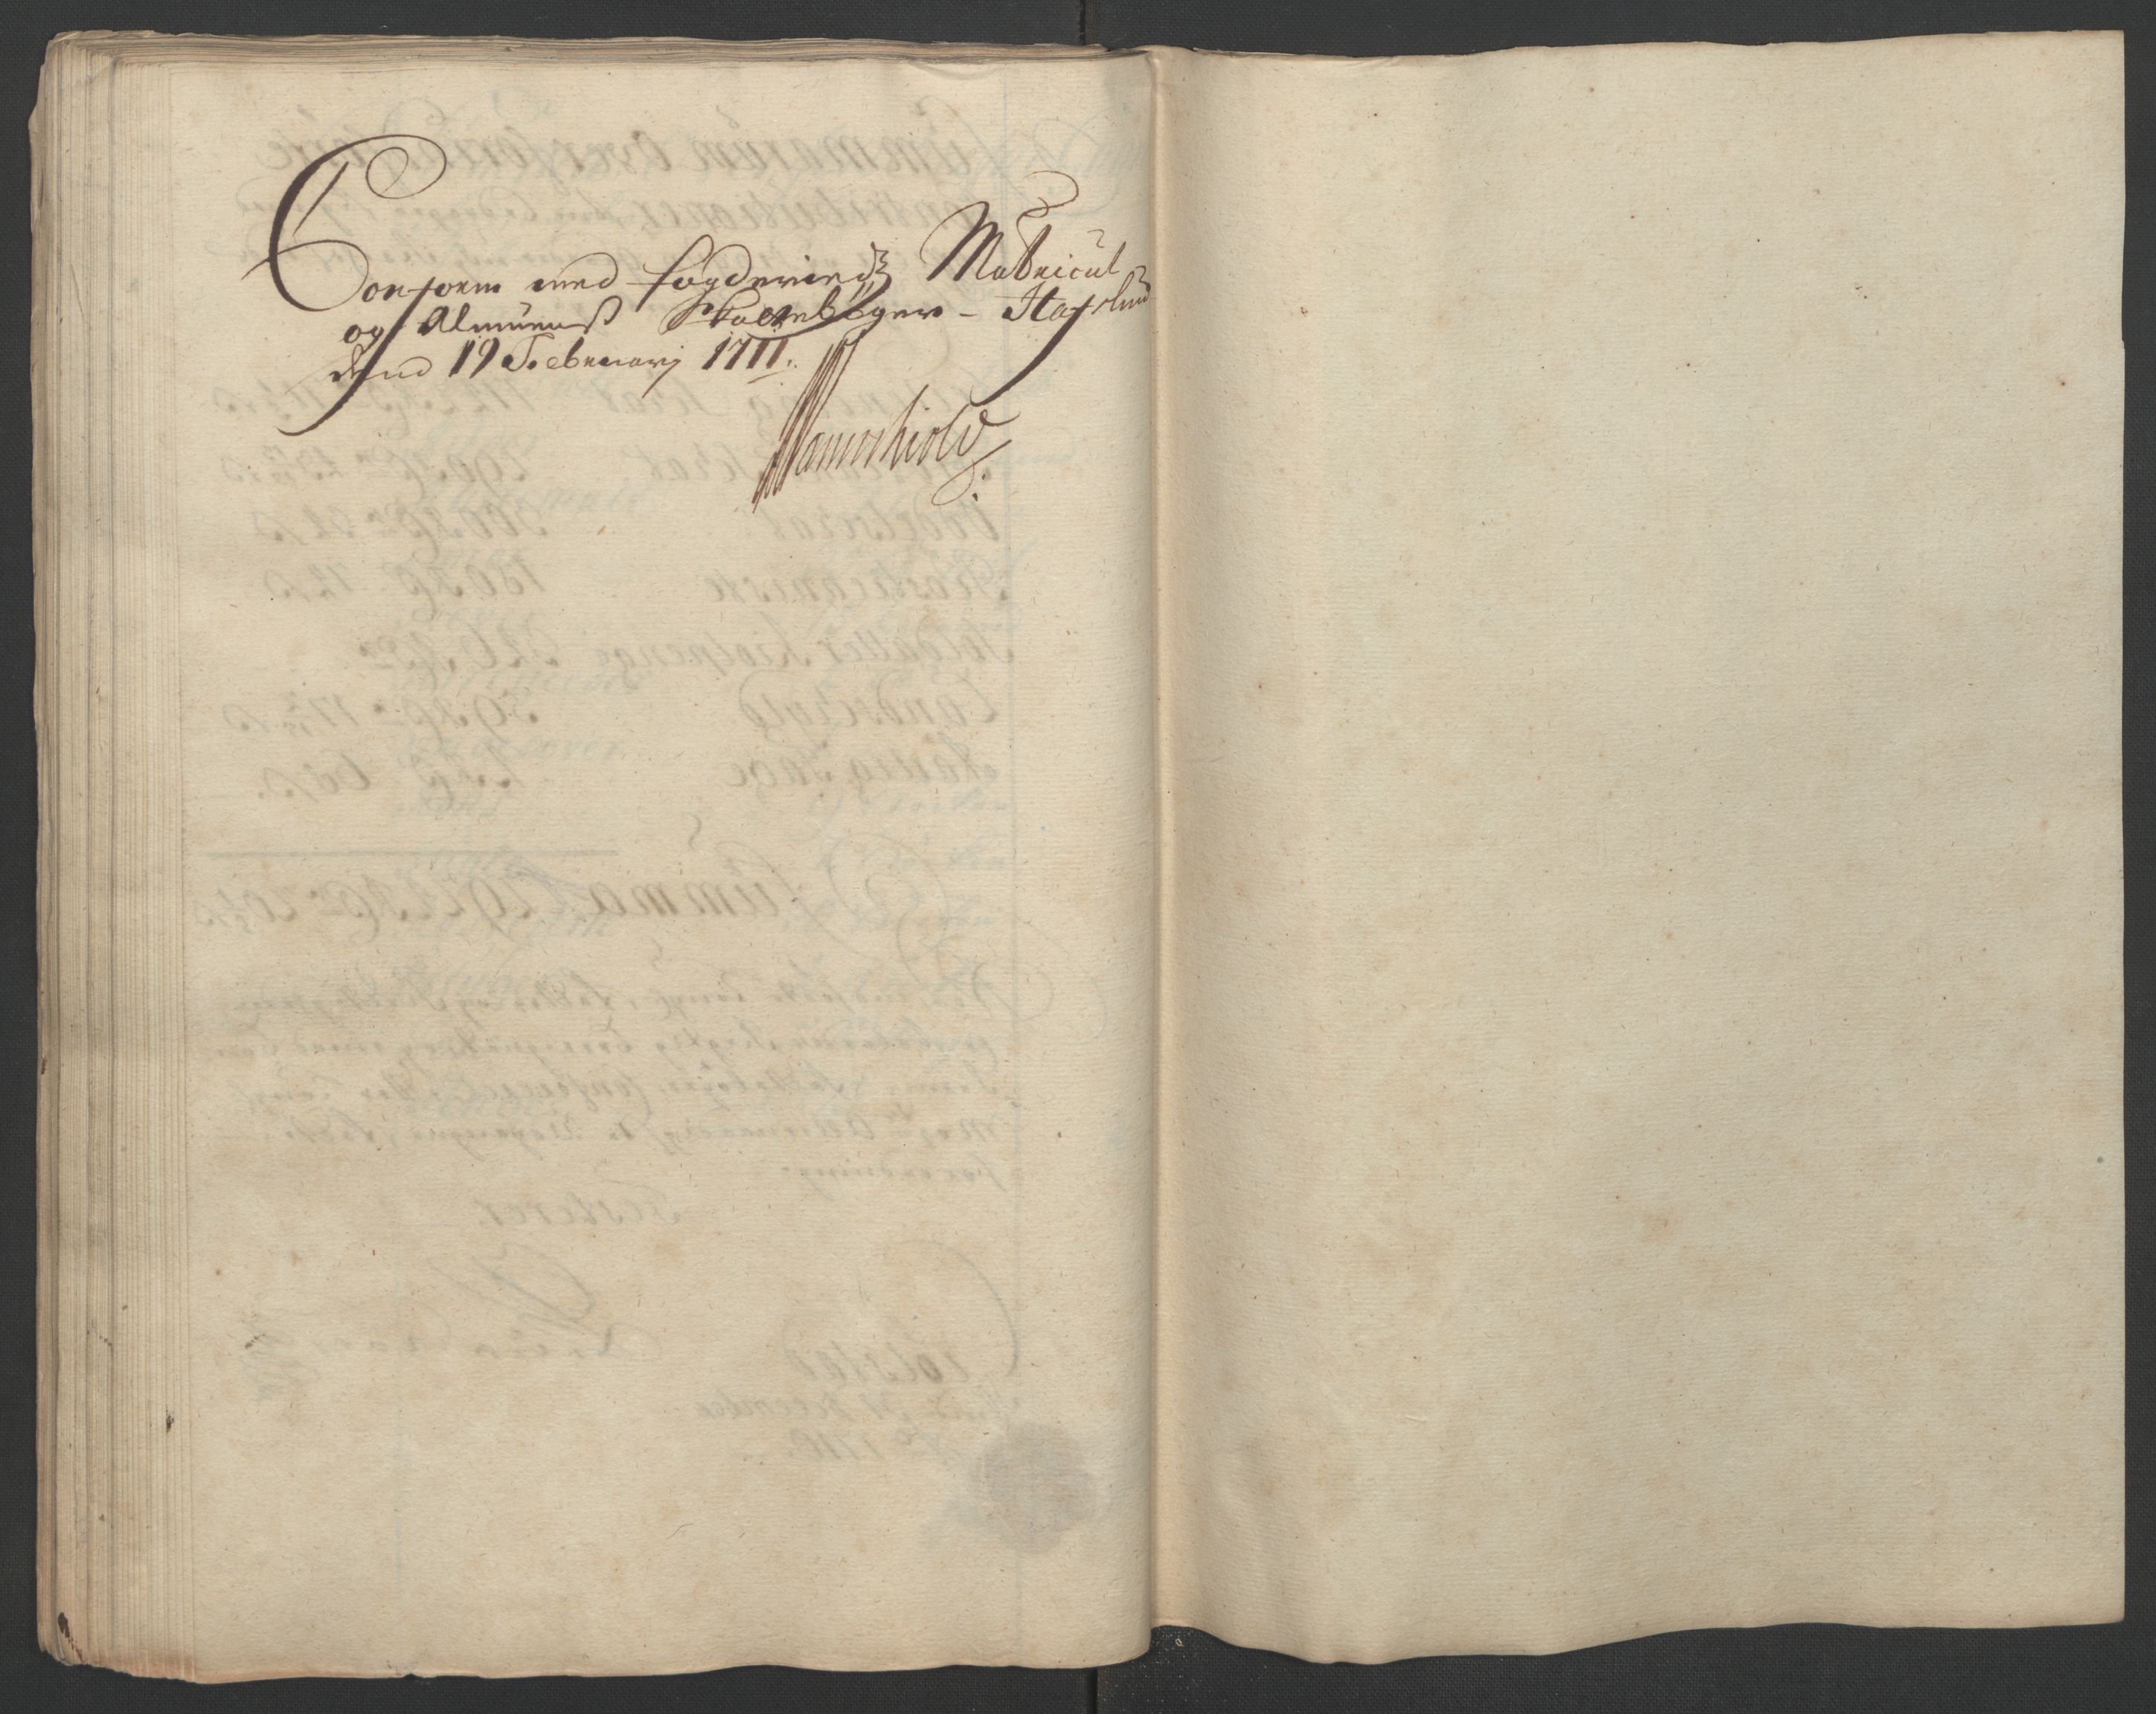 Conform med fogderiedz Matricul
og Almuens Skattebøger - Hafslund
dend 19 Februarj 1711.
Wernerskiold